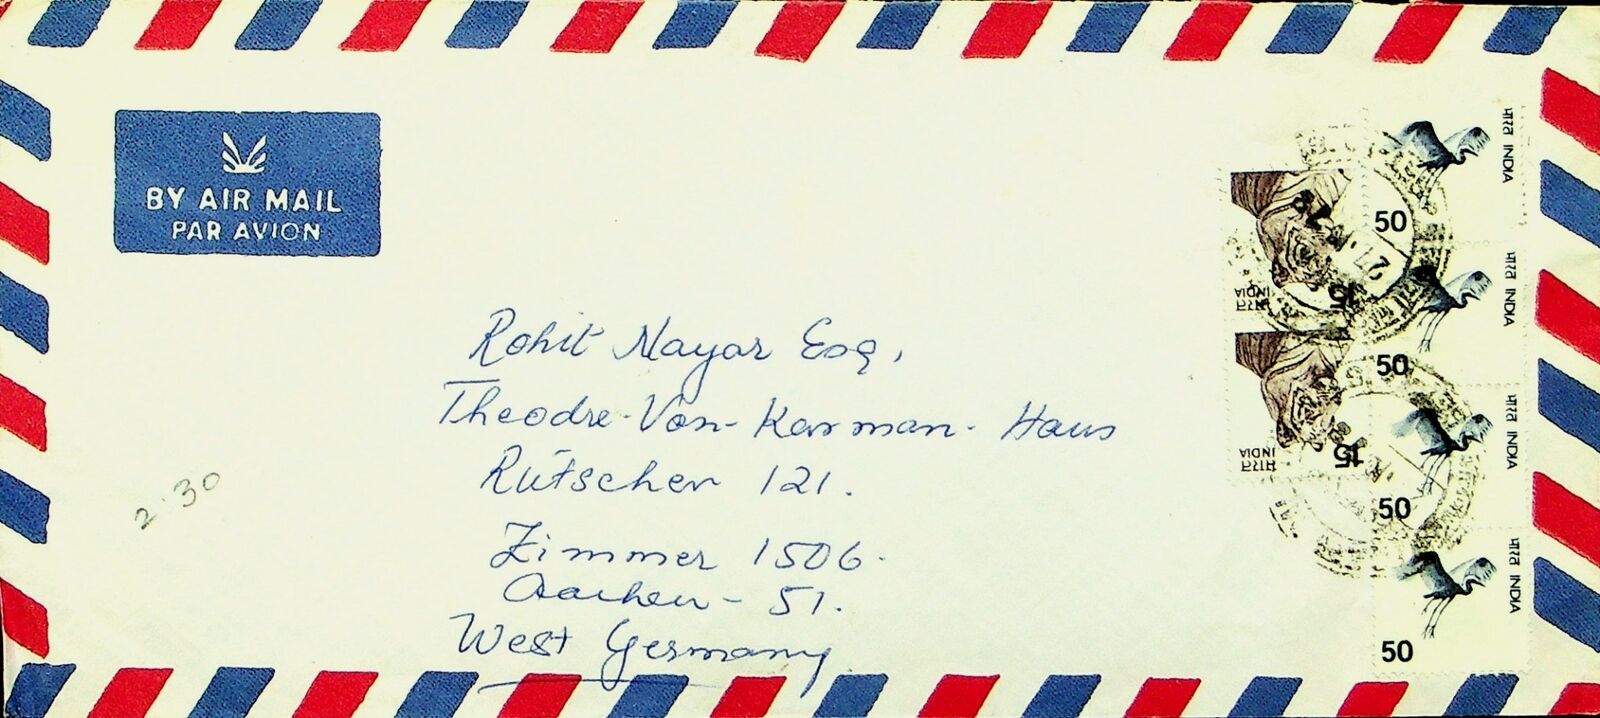 BY AIR MAIL
PAR AVION
Rohit Nayar Esq,
Theodre-Von-Karman-Haus
Rütscher 121.
Zimmer 1506.
Aachen - 51.
West Germany
2.30
भारत INDIA
50
भारत INDIA
50
भारत INDIA
50
भारत INDIA
50
भारत INDIA
15
भारत INDIA
15